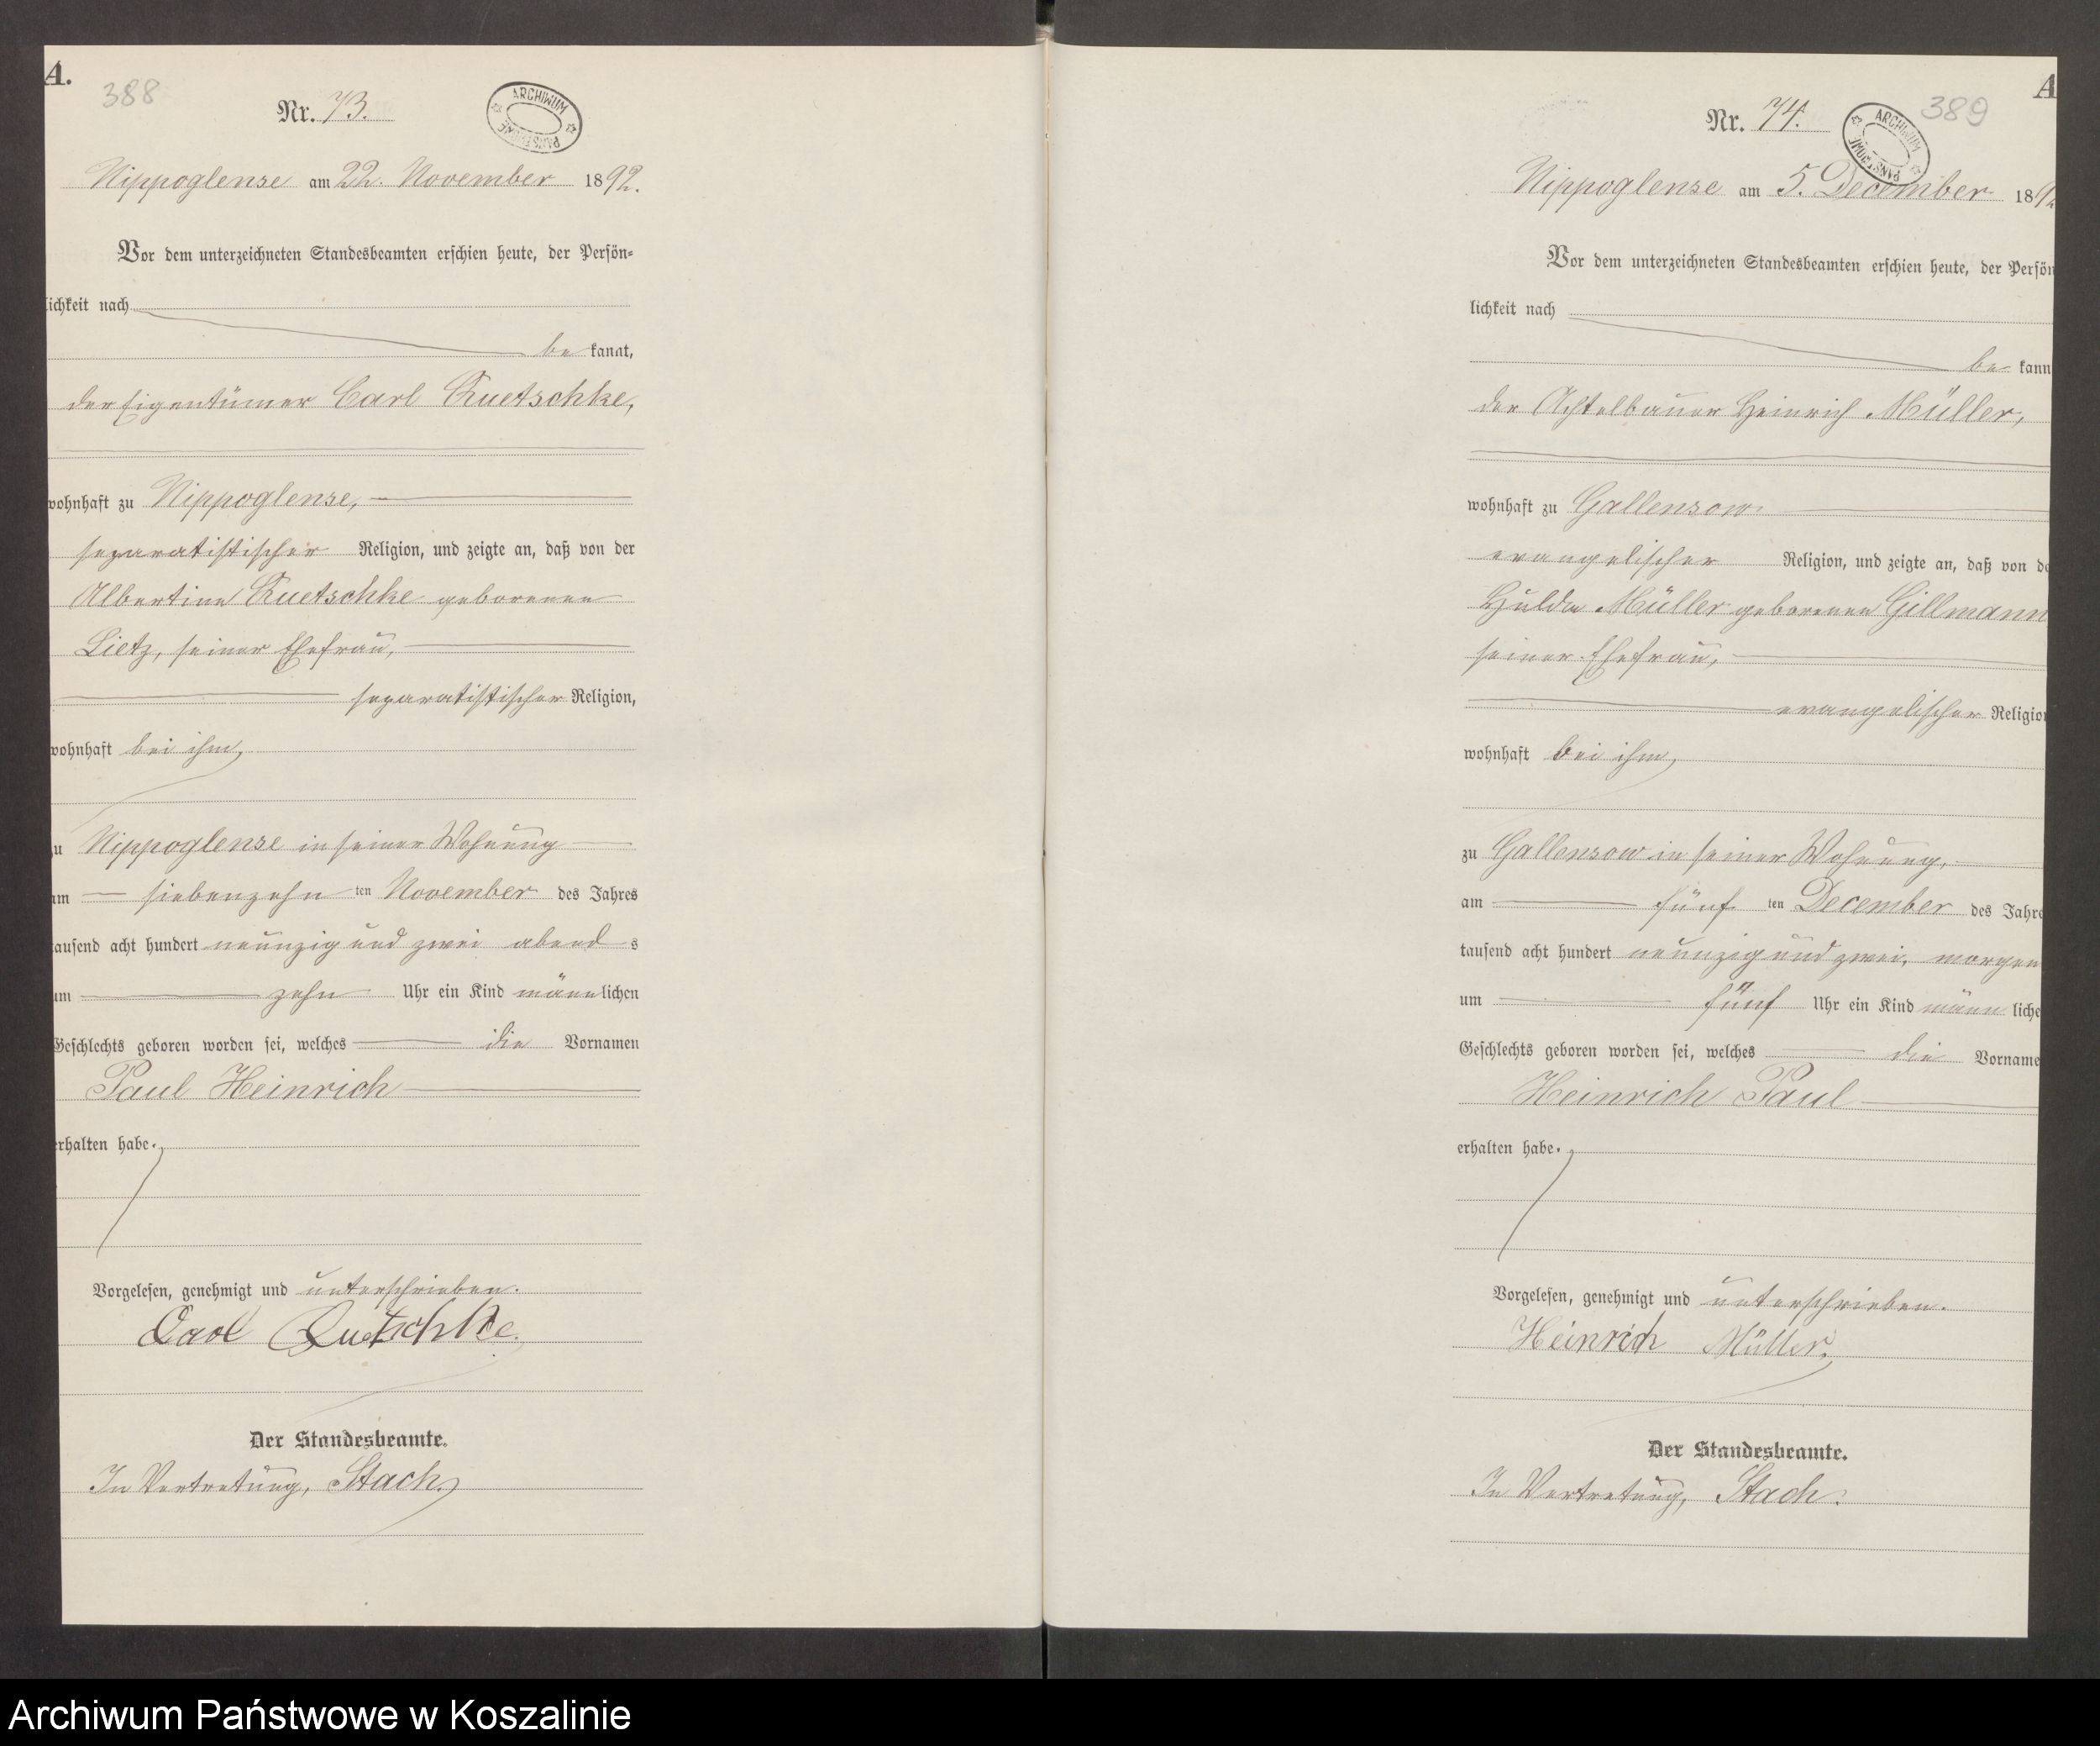 A.
388
Nr. 73.
ARCHIWUM PAŃSTWOWE
Nippoglense am 22. November 1892.
Vor dem unterzeichneten Standesbeamten erschien heute, der Persön-
lichkeit nach
be kannt,
der Eigentümer Carl Ruetschke,
wohnhaft zu Nippoglense,
separatistischer Religion, und zeigte an, daß von der
Albertine Ruetschke geborenen
Lietz, seiner Ehefrau,
separatistischer Religion,
wohnhaft bei ihm,
zu Nippoglense in seiner Wohnung
am siebenzehn ten November des Jahres
tausend acht hundert neunzig und zwei abend s
um zehn Uhr ein Kind männlichen
Geschlechts geboren worden sei, welches die Vornamen
Paul Heinrich
erhalten habe.
Vorgelesen, genehmigt und unterschrieben.
Carl Ruetschke.
Der Standesbeamte.
In Vertretung, Stach.
A
389
Nr. 74.
ARCHIWUM PAŃSTWOWE
Nippoglense am 5. December 1892
Vor dem unterzeichneten Standesbeamten erschien heute, der Persön
lichkeit nach
be kann
der Achtelbauer Heinrich Müller,
wohnhaft zu Gallensow
evangelischer Religion, und zeigte an, daß von de
Hulda Müller geborenen Gillmann
seiner Ehefrau,
evangelischer Religion
wohnhaft bei ihm,
zu Gallensow in seiner Wohnung,
am fünf ten December des Jahre
tausend acht hundert neunzig und zwei, morgen
um fünf Uhr ein Kind männ liche
Geschlechts geboren worden sei, welches die Vorname
Heinrich Paul
erhalten habe.
Vorgelesen, genehmigt und unterschrieben.
Heinrich Müller.
Der Standesbeamte.
In Vertretung, Stach.
Archiwum Państwowe w Koszalinie